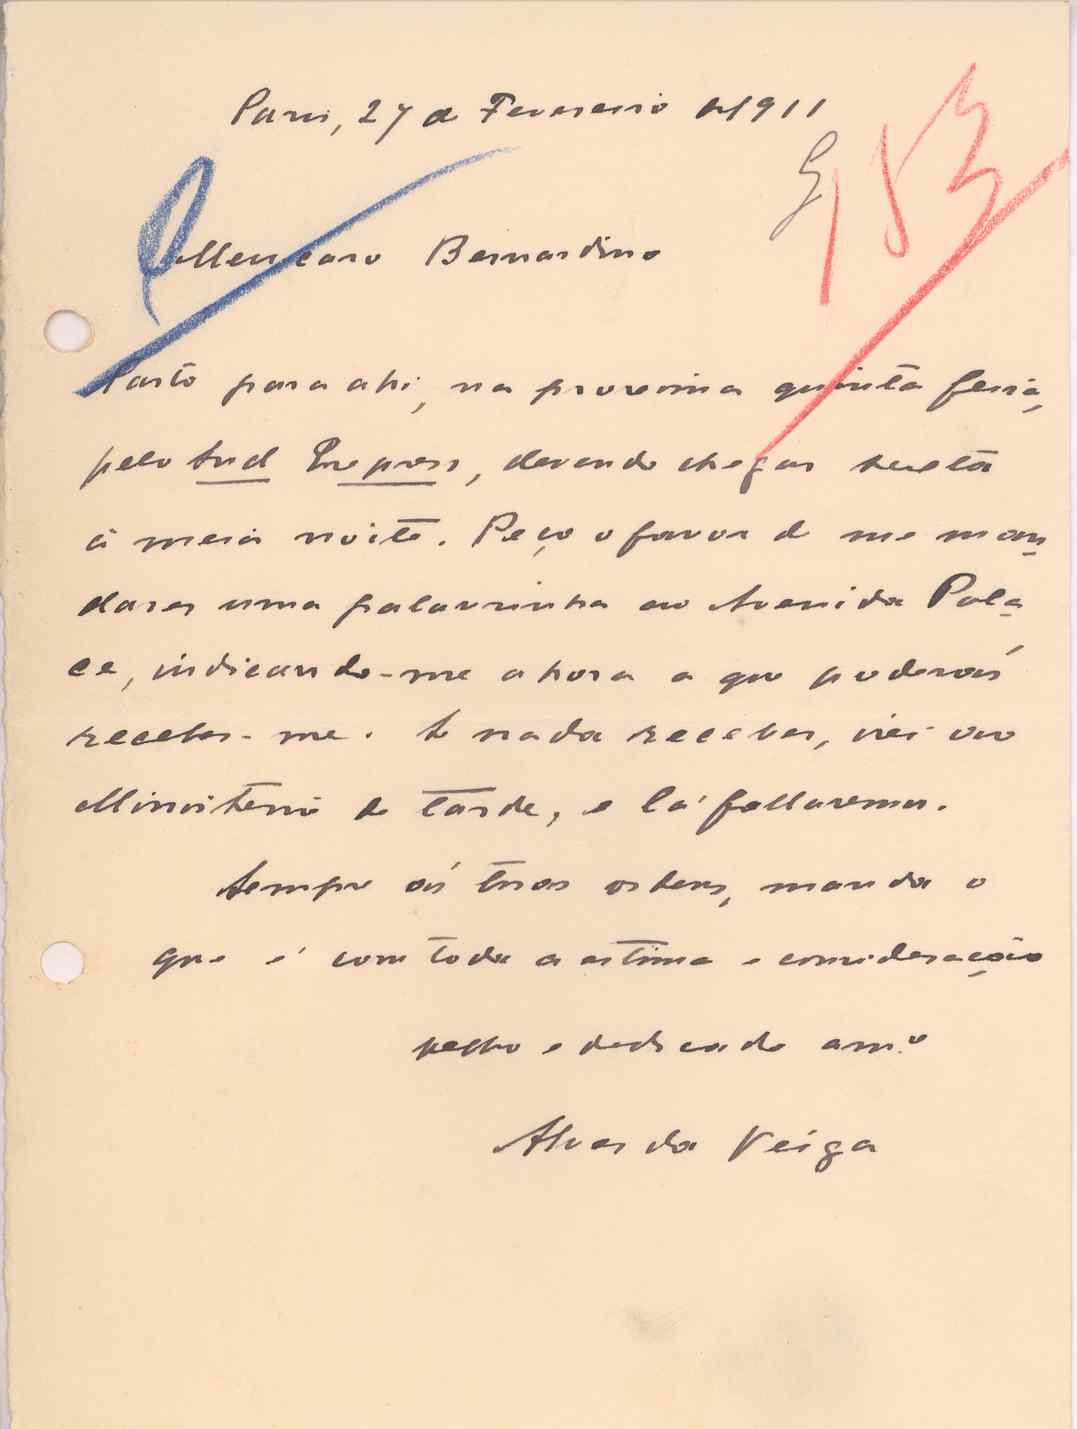 Paris, 27 de Fevereiro de 1911
G 153
Meu caro Bernardino
Parto para ahi, na proxima quinta feira,
pelo Sud Express, devendo chegar sexta
á meia noite. Peço o favor de me man
dares uma palavrinha ao Avenida Pala
ce, indicando-me a hora a que poderás
receber-me. Se nada receber, irei ao
Ministerio de tarde, e lá fallaremos.
Sempre ás tuas ordens, manda o
que é com toda a estima e consideração
velho e dedicado am.º
Alves da Veiga